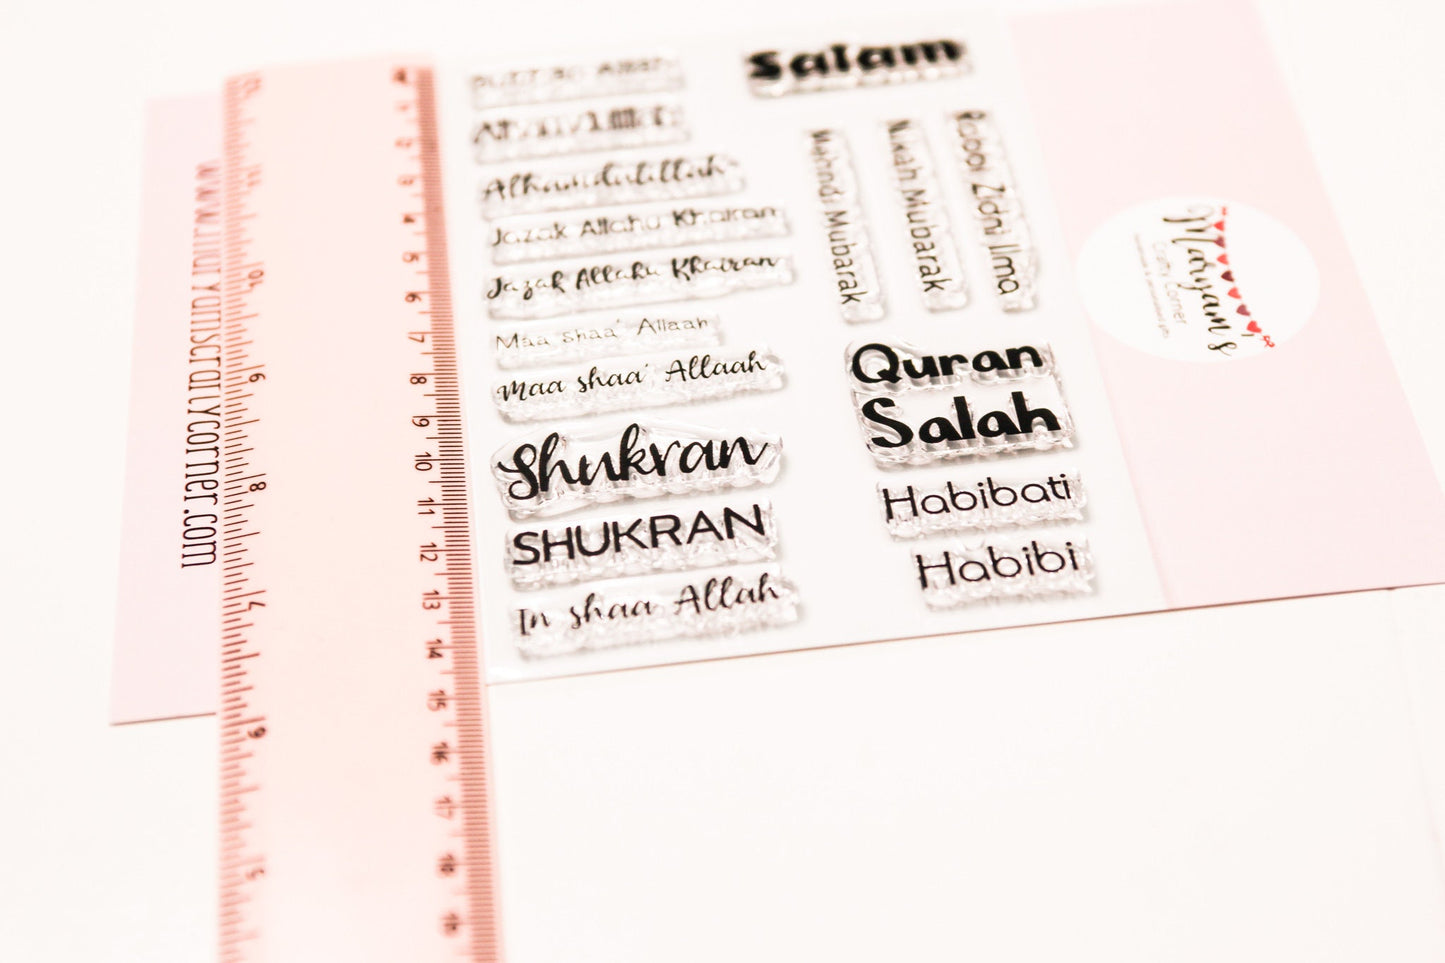 Alhamdulillah
Jazak Allahu Khairan
Jazak Allahu Khairan
Maa shaa' Allaah
Maa shaa' Allaah
Shukran
SHUKRAN
In shaa Allah
Salam
Mehindi Mubarak
Nikah Mubarak
Rabbi Zidni Ilma
Quran
Salah
Habibati
Habibi
Maryam's
Crafty Corner
www.maryamscraftycorner.com
4
5
6
7
8
9
10
11
12
13
14
15
16
17
18